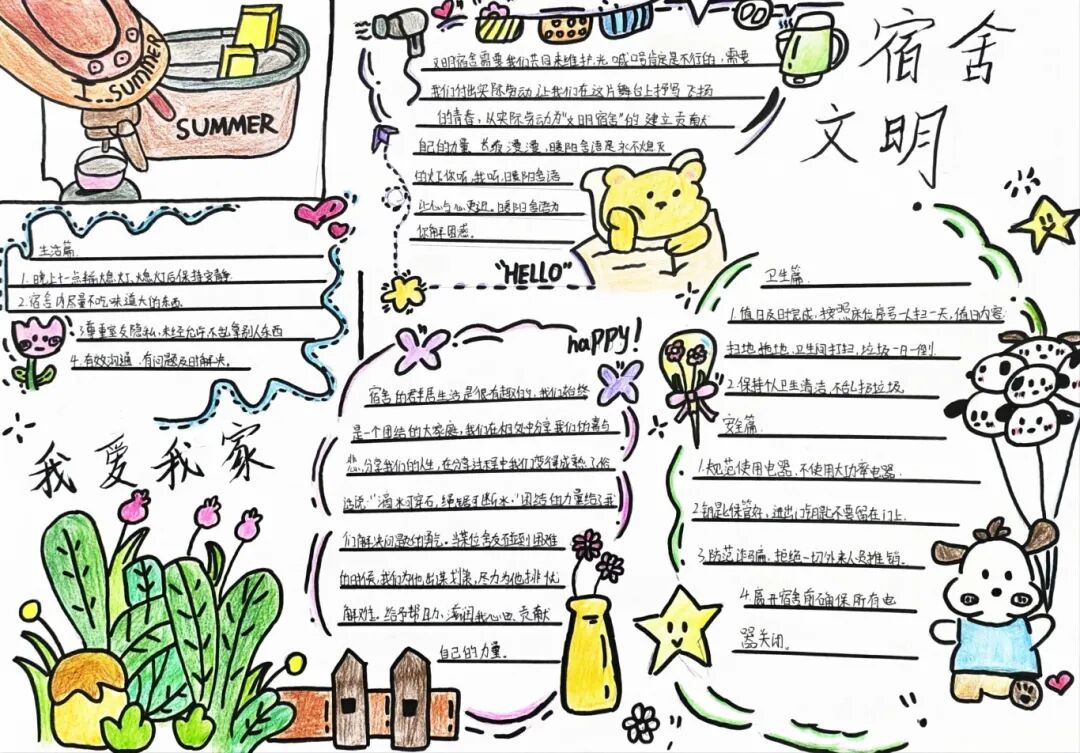 SUMMER
SUMMER
宿舍
文明
文明宿舍需要我们共同来维护,光喊口号肯定是不行的,需要
我们付出实际劳动,让我们在这片舞台上抒写飞扬
的青春,从实际劳动为“文明宿舍”的建立贡献
自己的力量。长夜漫漫,暖阳舍语是永不熄灭
的灯,你听,我听,暖阳舍语
让心与心更近。暖阳舍语为
你解困惑。
"HELLO"
生活篇
1.晚上十一点半熄灯,熄灯后保持安静.
2.宿舍内尽量不吃味道大的东西.
3.尊重室友隐私,未经允许不乱拿别人东西
4.有效沟通,有问题及时解决。
我爱我家
happy!
宿舍的群居生活是很有趣的,我们始终
是一个团结的大家庭,我们在相处中分享我们的喜与
悲,分享我们的人生,在分享过程中我们变得成熟了,俗
话说:“滴水可穿石,绳锯可断木。”团结的力量给了我
们解决问题的勇气。当某位舍友碰到困难
的时候,我们为他出谋划策,尽力为他排忧
解难。给予帮助,滋润我心田,贡献
自己的力量。
卫生篇
1.值日及时完成,按照床位序号一人扫一天,值日内容:
扫地,拖地,卫生间打扫,垃圾一日一倒.
2.保持个人卫生清洁,不乱扔垃圾.
安全篇
1.规范使用电器,不使用大功率电器.
2.钥匙保管好,进出门钥匙不要留在门上.
3.防范诈骗,拒绝一切外来人员推销.
4.离开宿舍前确保所有电
器关闭。